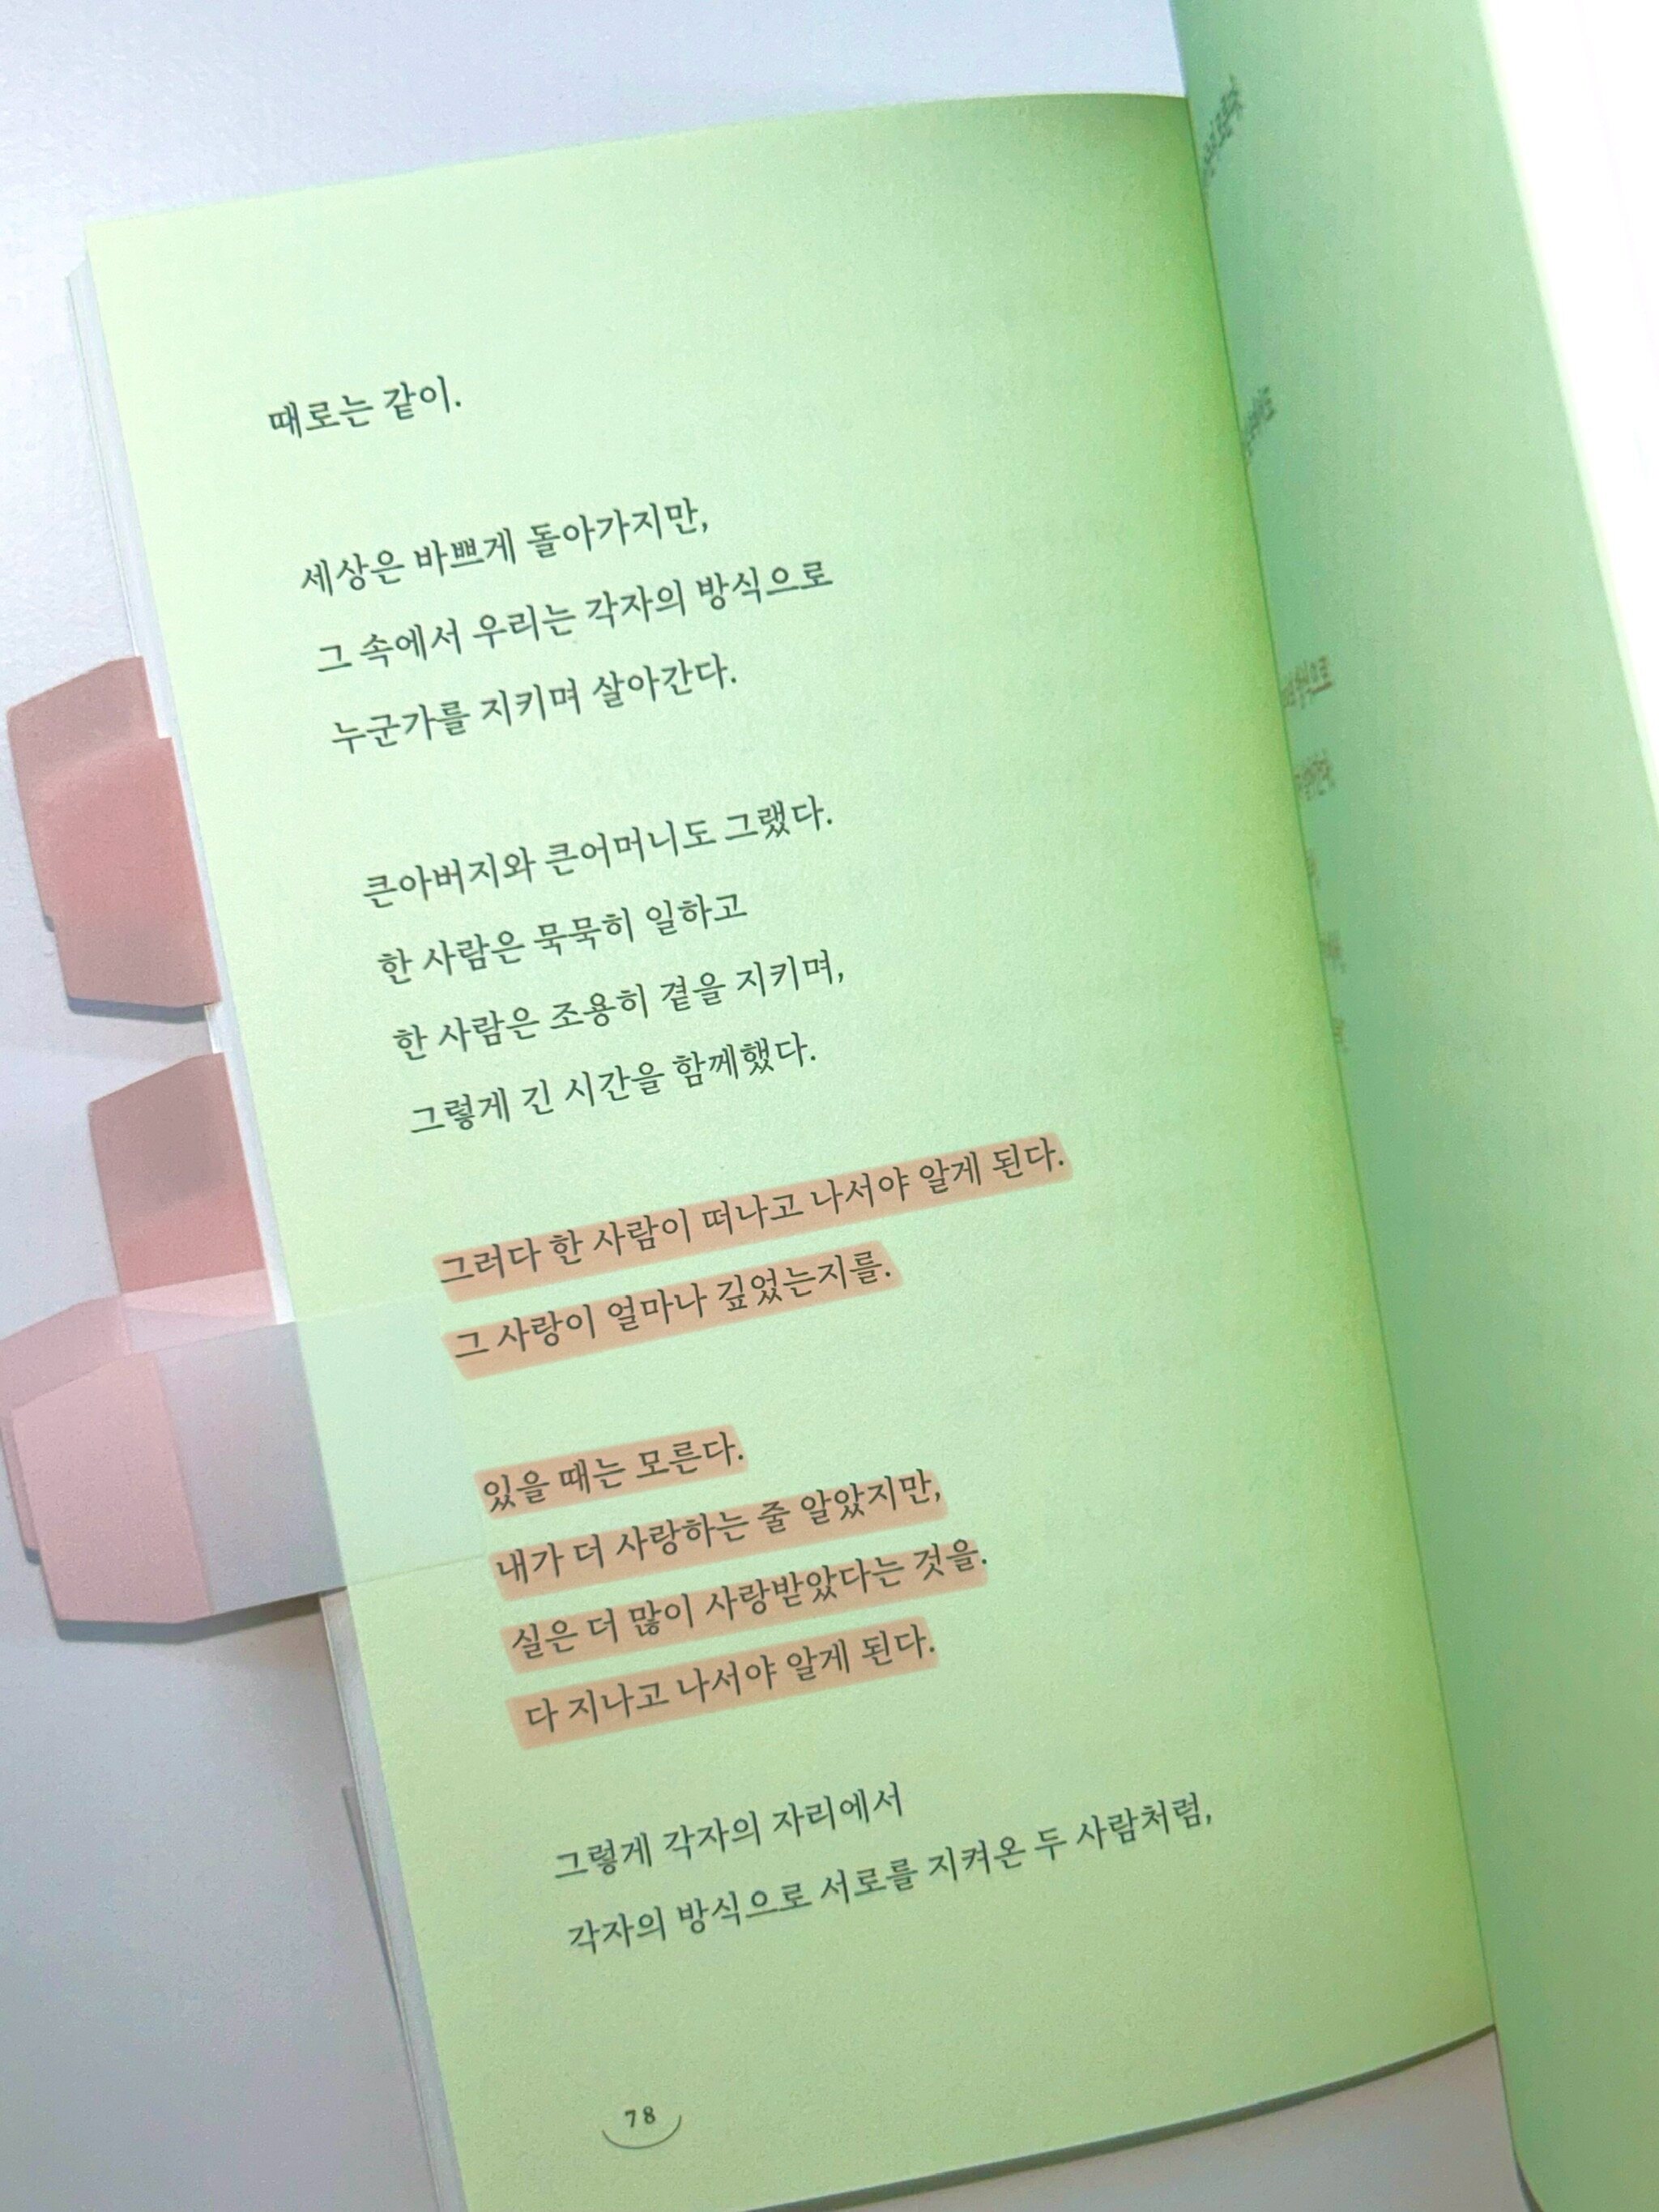 때로는 같이.
세상은 바쁘게 돌아가지만,
그 속에서 우리는 각자의 방식으로
누군가를 지키며 살아간다.
큰아버지와 큰어머니도 그랬다.
한 사람은 묵묵히 일하고
한 사람은 조용히 곁을 지키며,
그렇게 긴 시간을 함께했다.
그러다 한 사람이 떠나고 나서야 알게 된다.
그 사랑이 얼마나 깊었는지를.
있을 때는 모른다.
내가 더 사랑하는 줄 알았지만,
실은 더 많이 사랑받았다는 것을.
다 지나고 나서야 알게 된다.
그렇게 각자의 자리에서
각자의 방식으로 서로를 지켜온 두 사람처럼,
78